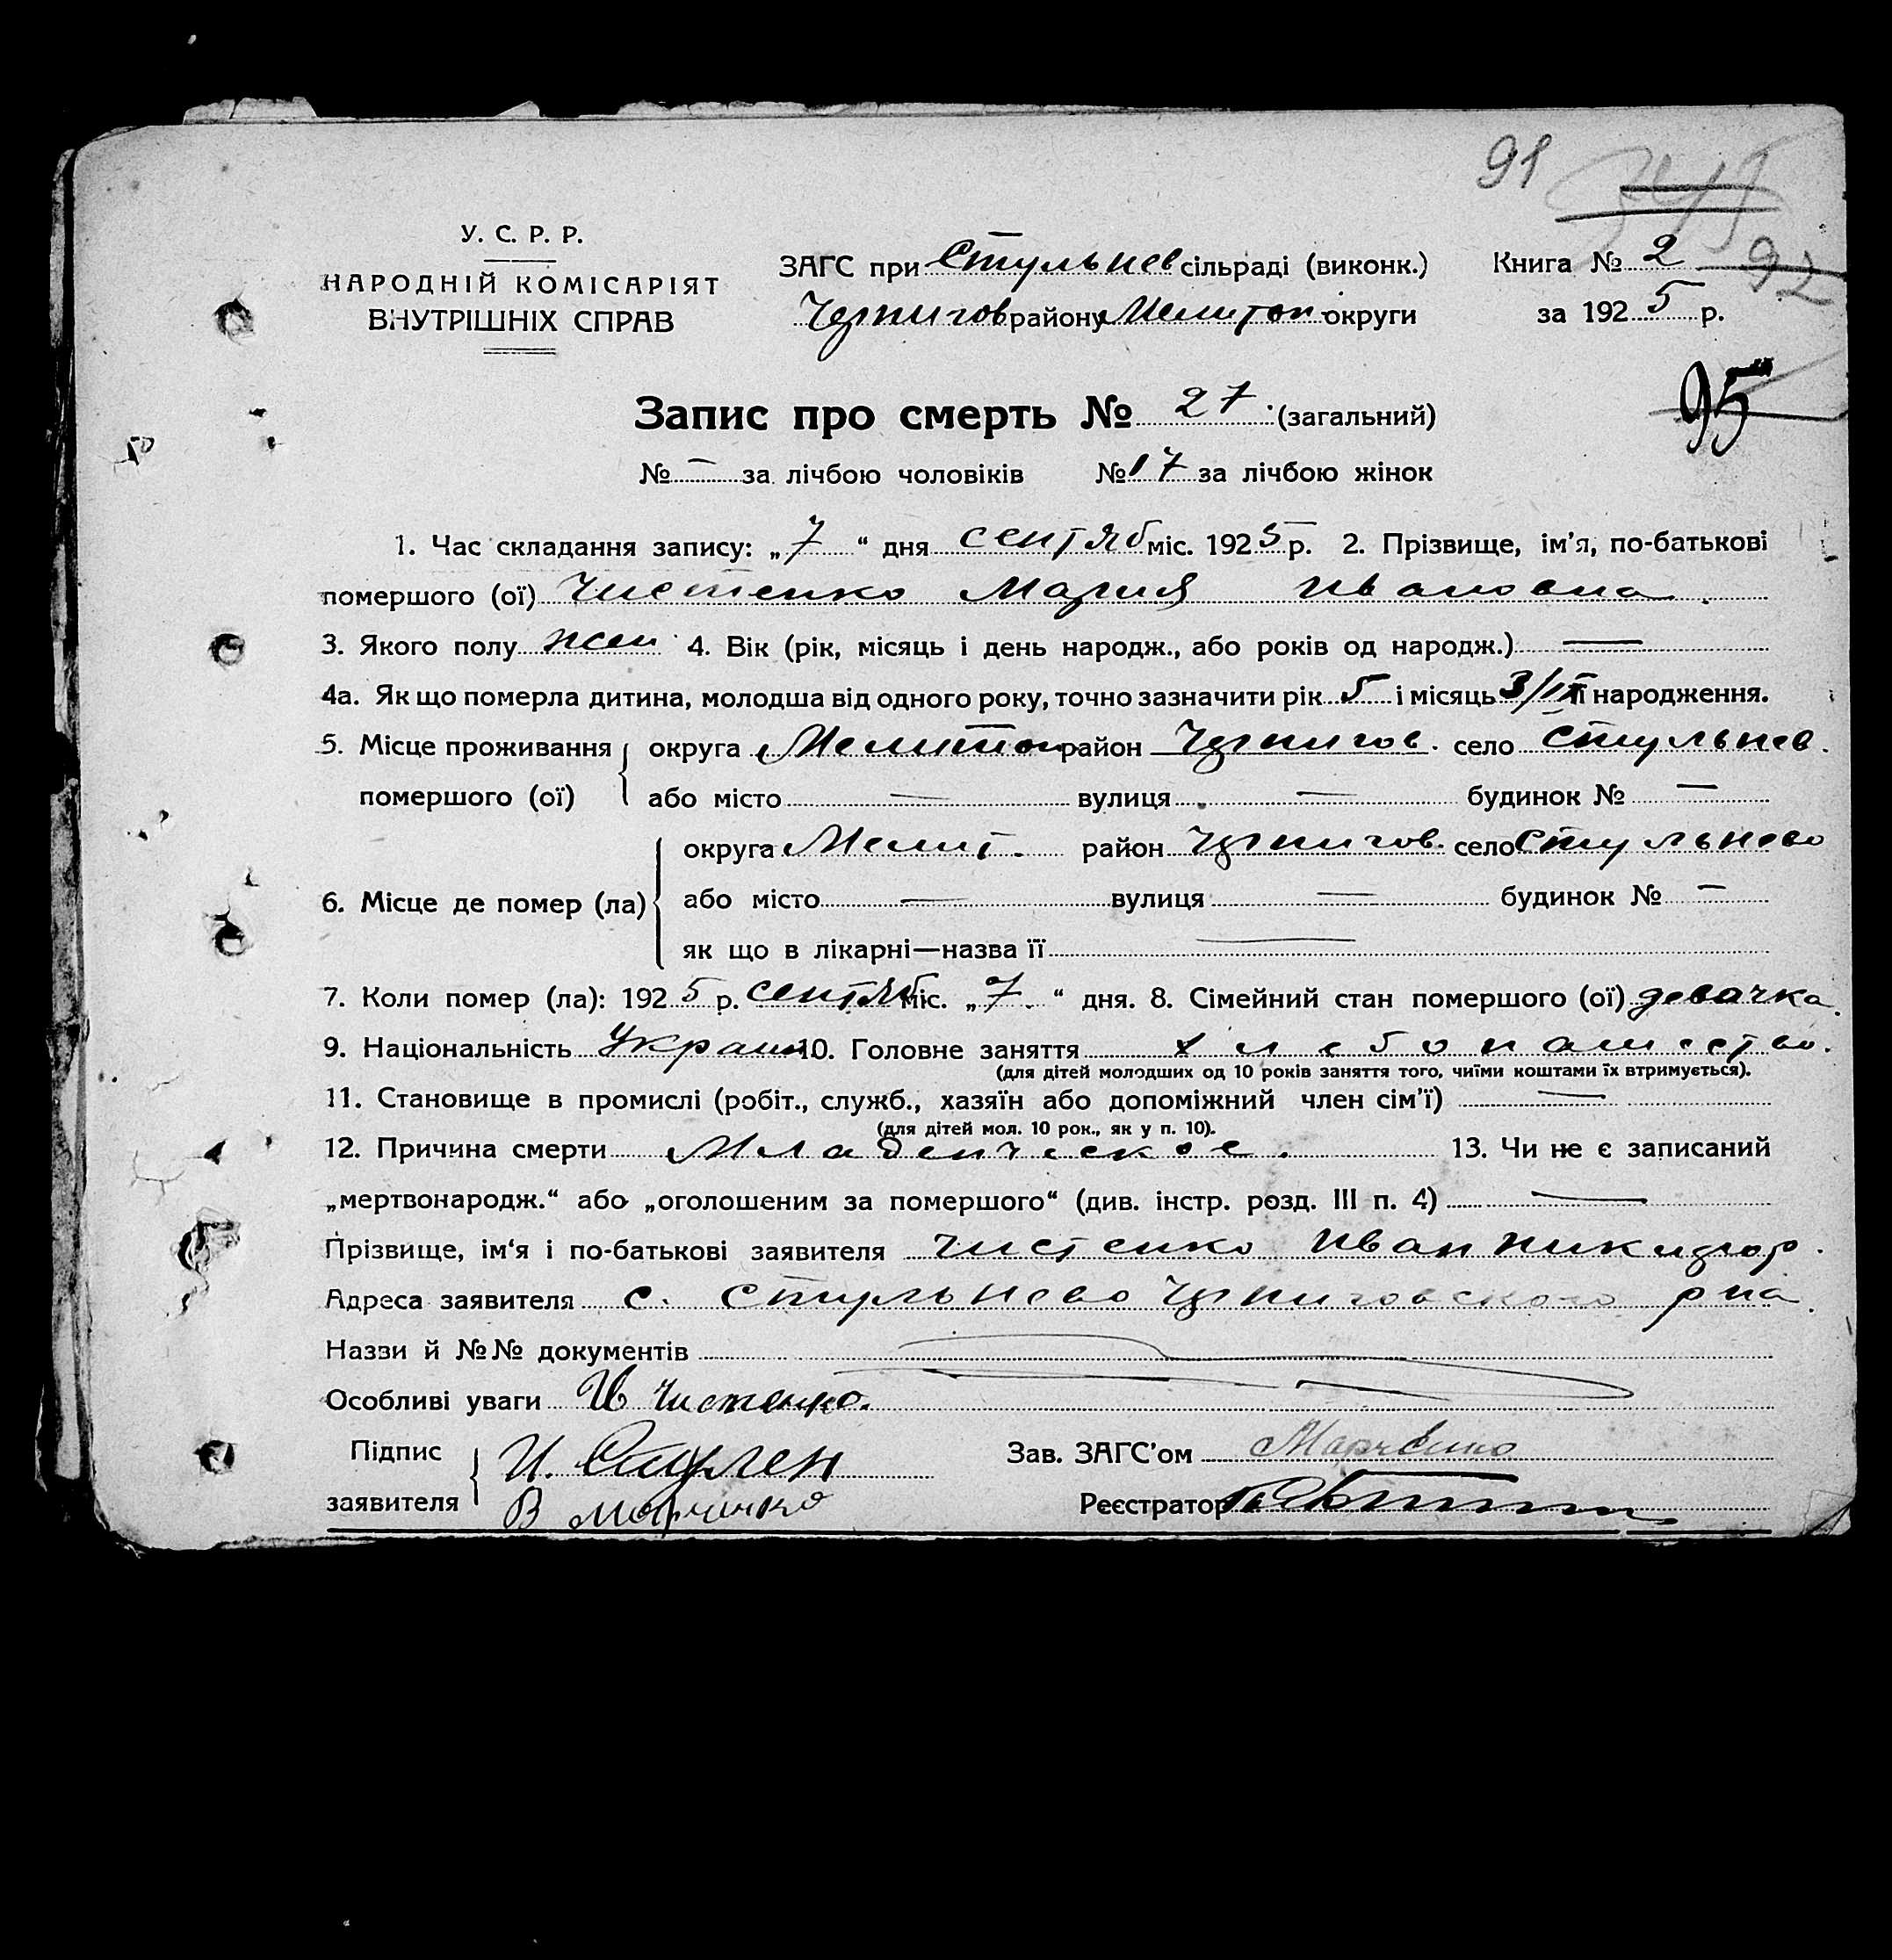 91
92
У. С. Р. Р.
НАРОДНІЙ КОМІСАРІЯТ
ВНУТРІШНІХ СПРАВ
ЗАГС при Стульнев сільраді (виконк.)
Чернигов району Мелитоп округи
Книга № 2
за 1925 р.
95
Запис про смерть № 27 (загальний)
№ — за лічбою чоловіків № 17 за лічбою жінок
1. Час складання запису: „7“ дня сентяб міс. 1925 р. 2. Прізвище, ім'я, по-батькові
помершого (ої) Чистенко Мария Ивановна.
3. Якого полу жен 4. Вік (рік, місяць і день народж., або років од народж.) —
4а. Як що померла дитина, молодша від одного року, точно зазначити рік 5 і місяць 3/IX її народження.
5. Місце проживання помершого (ої) округа Мелитоп район Чернигов. село Стульнев.
або місто — вулиця — будинок № —
6. Місце де помер (ла) округа Мелит. район Чернигов. село Стульнево
або місто — вулиця — будинок № —
як що в лікарні—назва її —
7. Коли помер (ла): 1925 р. сентяб міс. „7“ дня. 8. Сімейний стан помершого (ої) девочка.
9. Національність Украин. 10. Головне заняття хлебопашество.
(для дітей молодших од 10 років заняття того, чиїми коштами їх втримується).
11. Становище в промислі (робіт., служб., хазяїн або допоміжний член сім'ї) —
(для дітей мол. 10 рок., як у п. 10).
12. Причина смерти Младенческое. 13. Чи не є записаний
„мертвонародж.“ або „оголошеним за помершого“ (див. інстр. розд. III п. 4) —
Прізвище, ім'я і по-батькові заявителя Чистенко Иван Никифор.
Адреса заявителя с. Стульнево Черниговского р на.
Назви й №№ документів
Особливі уваги Ив Чистенко.
Підпис заявителя И.
В Марченко
Зав. ЗАГС'ом
Реєстратор